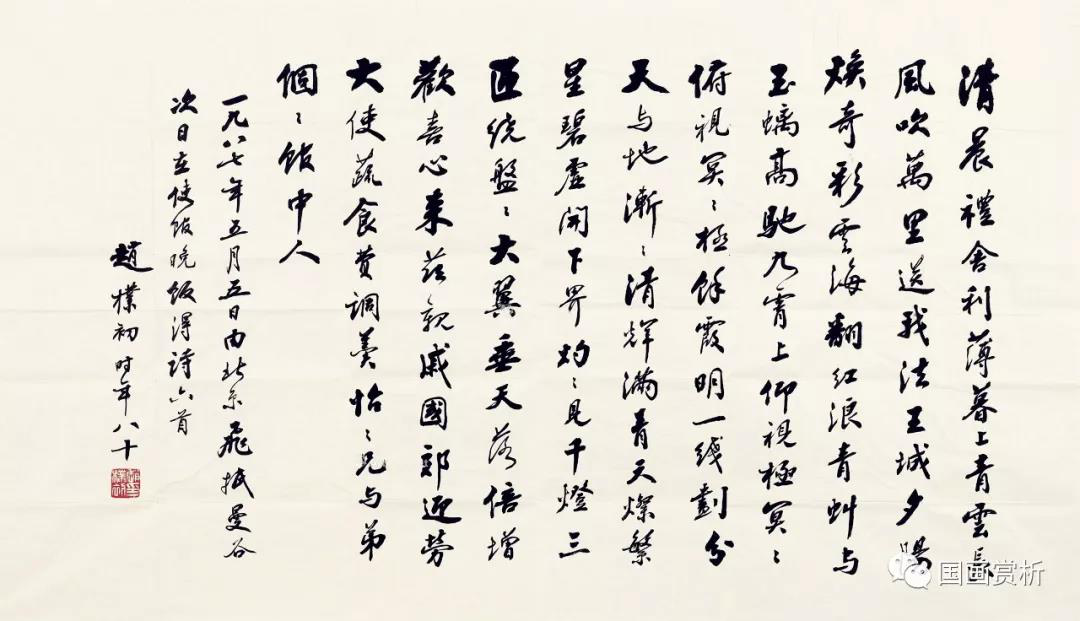 清晨禮舍利薄暮上青雲長
風吹萬里送我法王城夕陽
煥奇彩雲海翻紅浪青虯与
玉螭高馳九霄上仰視極冥〻
俯視冥〻極餘霞明一线劃分
天与地漸〻清輝滿青天燦繁
星碧虛開下界灼〻見千燈三
匝绕盤〻大翼垂天落倍增
歡喜心来兹親戚國郊迎勞
大使蔬食费調羹怡〻兄与弟
個〻飯中人
一九八七年五月五日由北京飛抵曼谷
次日在使馆晚飯得詩六首
趙樸初时年八十
国画赏析